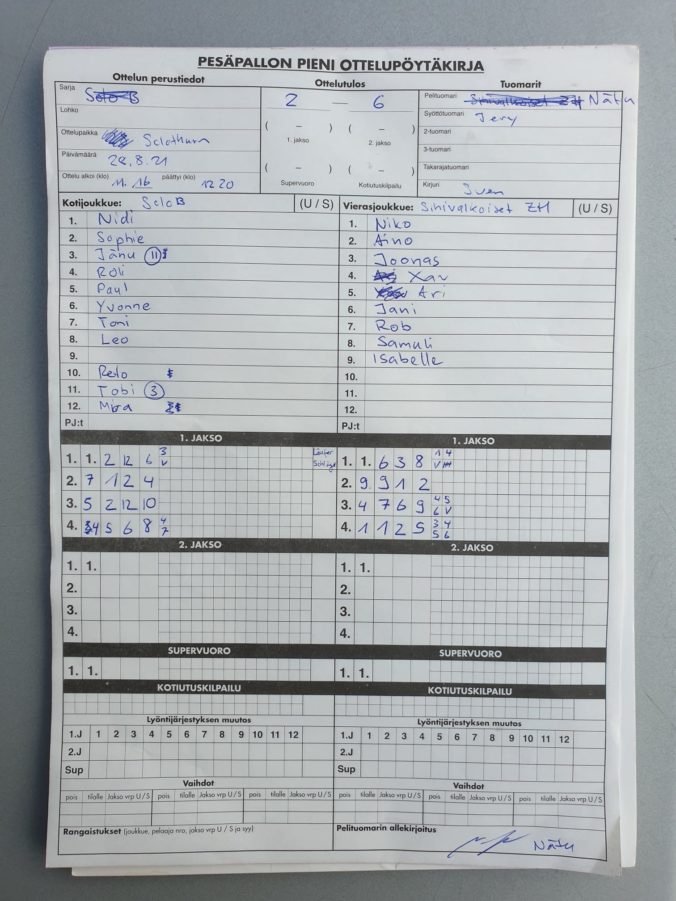 PESÄPALLON PIENI OTTELUPÖYTÄKIRJA
Ottelun perustiedot
Ottelutulos
Tuomarit
Sarja
Lohko
Ottelupaikka Solothurn
Päivämäärä 28.8.21
Ottelu alkoi (klo) 11.16 päättyi (klo) 12 20
2 — 6
( – ) ( – )
1. jakso 2. jakso
( – ) ( – )
Supervuoro Kotiutuskilpailu
Pelituomari Nätu
Syöttötuomari Jery
2-tuomari
3-tuomari
Takarajatuomari
Kirjuri Iven
Kotijoukkue: Solo B (U / S)
1. Nidi
2. Sophie
3. Jänu 11
4. Röli
5. Paul
6. Yvonne
7. Toni
8. Leo
9.
10. Reto
11. Tobi 3
12. Mira
PJ:t
Vierasjoukkue: Sinivalkoiset ZH (U / S)
1. Niko
2. Aino
3. Joonas
4. Xav
5. Ari
6. Jani
7. Rob
8. Samuli
9. Isabelle
10.
11.
12.
PJ:t
1. JAKSO
1. 1. 2 12 6 3 V
2. 7 1 2 4
3. 5 2 12 10
4. 4 5 6 8 4 7
1. JAKSO
1. 1. 6 3 8 1 4 V
2. 9 9 1 2
3. 4 7 6 9 4 5 6 V
4. 1 1 2 5 3 4 5 6
2. JAKSO
1. 1.
2.
3.
4.
2. JAKSO
1. 1.
2.
3.
4.
SUPERVUORO
1. 1.
SUPERVUORO
1. 1.
KOTIUTUSKILPAILU
KOTIUTUSKILPAILU
Lyöntijärjestyksen muutos
1.J 1 2 3 4 5 6 7 8 9 10 11 12
2.J
Sup
Lyöntijärjestyksen muutos
1.J 1 2 3 4 5 6 7 8 9 10 11 12
2.J
Sup
Vaihdot
pois tilalle Jakso vrp U / S pois tilalle Jakso vrp U / S pois tilalle Jakso vrp U / S
Vaihdot
pois tilalle Jakso vrp U / S pois tilalle Jakso vrp U / S pois tilalle Jakso vrp U / S
Rangaistukset (joukkue, pelaaja nro, jakso vrp U / S ja syy)
Pelituomarin allekirjoitus
Nätu